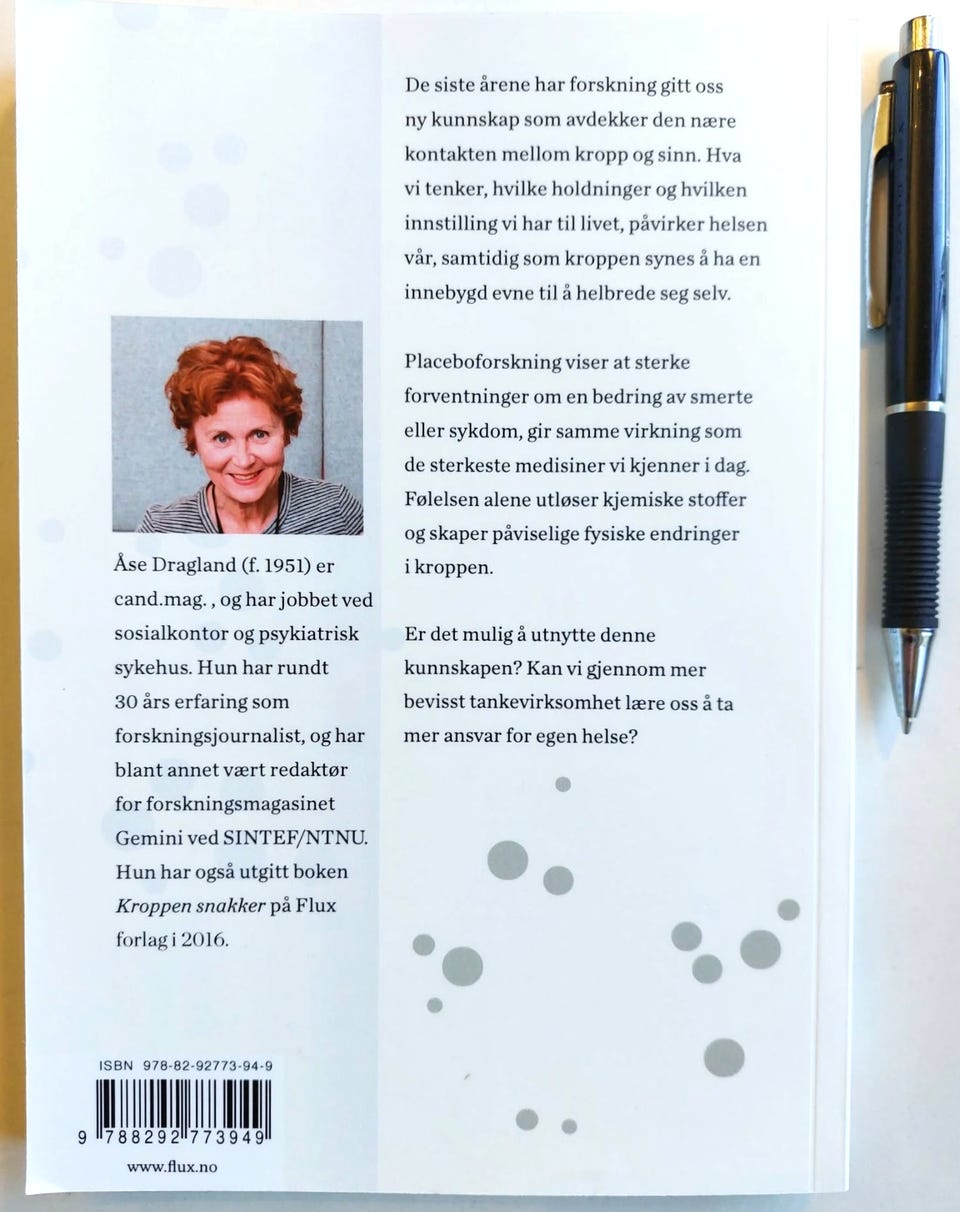 De siste årene har forskning gitt oss
ny kunnskap som avdekker den nære
kontakten mellom kropp og sinn. Hva
vi tenker, hvilke holdninger og hvilken
innstilling vi har til livet, påvirker helsen
vår, samtidig som kroppen synes å ha en
innebygd evne til å helbrede seg selv.
Placeboforskning viser at sterke
forventninger om en bedring av smerte
eller sykdom, gir samme virkning som
de sterkeste medisiner vi kjenner i dag.
Følelsen alene utløser kjemiske stoffer
og skaper påviselige fysiske endringer
i kroppen.
Er det mulig å utnytte denne
kunnskapen? Kan vi gjennom mer
bevisst tankevirksomhet lære oss å ta
mer ansvar for egen helse?
Åse Dragland (f. 1951) er
cand.mag. , og har jobbet ved
sosialkontor og psykiatrisk
sykehus. Hun har rundt
30 års erfaring som
forskningsjournalist, og har
blant annet vært redaktør
for forskningsmagasinet
Gemini ved SINTEF/NTNU.
Hun har også utgitt boken
Kroppen snakker på Flux
forlag i 2016.
ISBN 978-82-92773-94-9
9 788292 773949
www.flux.no